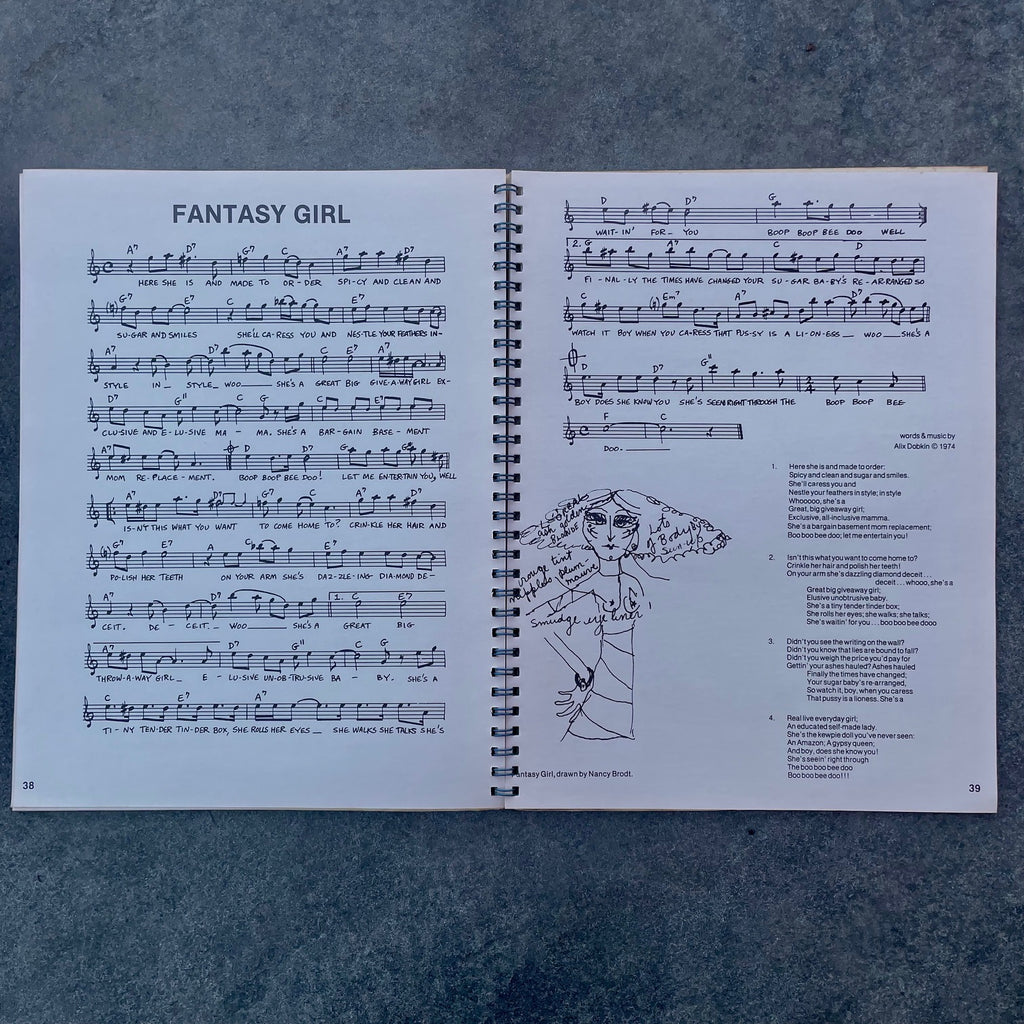 FANTASY GIRL
A7 D7 G7 C A7 D7
HERE SHE IS AND MADE TO OR-DER SPI-CY AND CLEAN AND
G7 E7 C D7 E7
SU-GAR AND SMILES SHE'LL CA-RESS YOU AND NES-TLE YOUR FEATHERS IN-
A7 D7 C E7 A7
STYLE IN_ STYLE_ WOO___ SHE'S A GREAT BIG GIVE-A-WAY GIRL EX-
D7 G11 C G C E7
CLU-SIVE AND E-LU-SIVE MA - MA. SHE'S A BAR-GAIN BASE-MENT
A7 D D7 G C
MOM RE-PLACE-MENT. BOOP BOOP BEE DOO! LET ME EN-TER-TAIN YOU, WELL
A7 D7 G7 C A7 D7
IS-N'T THIS WHAT YOU WANT TO COME HOME TO? CRIN-KLE HER HAIR AND
G7 E7 A C D7 E7
PO-LISH HER TEETH ON YOUR ARM SHE'S DAZ-ZLE-ING DIA-MOND DE-
A7 D7 1. C E7
CEIT. DE-CEIT._ WOO___ SHE'S A GREAT BIG
A7 D7 G11 C G
THROW-A-WAY GIRL_ E-LU-SIVE UN-OB-TRU-SIVE BA - BY. SHE'S A
C E7 A7
TI-NY TEN-DER TIN-DER BOX, SHE ROLLS HER EYES_ SHE WALKS SHE TALKS SHE'S
38
D D7 G
WAIT-IN' FOR_ YOU BOOP BOOP BEE DOO WELL
2. G A7 C D
FI-NAL-LY THE TIMES HAVE CHANGED YOUR SU-GAR BA-BY'S RE-AR-RANGED SO
C Em7 A7 D7
WATCH IT BOY WHEN YOU CA-RESS THAT PUS-SY IS A LI-ON-ESS__ WOO___SHE'S A
D D7 G11
BOY DOES SHE KNOW YOU SHE'S SEEN RIGHT THROUGH THE BOOP BOOP BEE
F C
DOO.
words & music by
Alix Dobkin © 1974
1. Here she is and made to order:
Spicy and clean and sugar and smiles.
She'll caress you and
Nestle your feathers in style; in style
Whooooo, she's a
Great, big giveaway girl;
Exclusive, all-inclusive mamma.
She's a bargain basement mom replacement;
Boo boo bee doo; let me entertain you!
2. Isn't this what you want to come home to?
Crinkle her hair and polish her teeth!
On your arm she's dazzling diamond deceit . . .
deceit . . . whooo, she's a
Great big giveaway girl;
Elusive unobtrusive baby.
She's a tiny tender tinder box;
She rolls her eyes; she walks; she talks;
She's waitin' for you . . . boo boo bee dooo
3. Didn't you see the writing on the wall?
Didn't you know that lies are bound to fall?
Didn't you weigh the price you'd pay for
Gettin' your ashes hauled? Ashes hauled
Finally the times have changed;
Your sugar baby's re-arranged,
So watch it, boy, when you caress
That pussy is a lioness. She's a
4. Real live everyday girl;
An educated self-made lady.
She's the kewpie doll you've never seen:
An Amazon; A gypsy queen;
And boy, does she know you!
She's seein' right through
The boo boo bee doo
Boo boo bee doo!!!
ash golden
Lots
of Body
rouge tint
plum
mauve
Smudge eye liner
Fantasy Girl, drawn by Nancy Brodt.
39